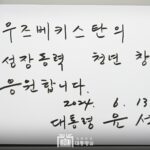 우즈베키스탄의
성장동력 천년 창
응원합니다.
2024. 6. 13
대통령 윤 석
대통령실